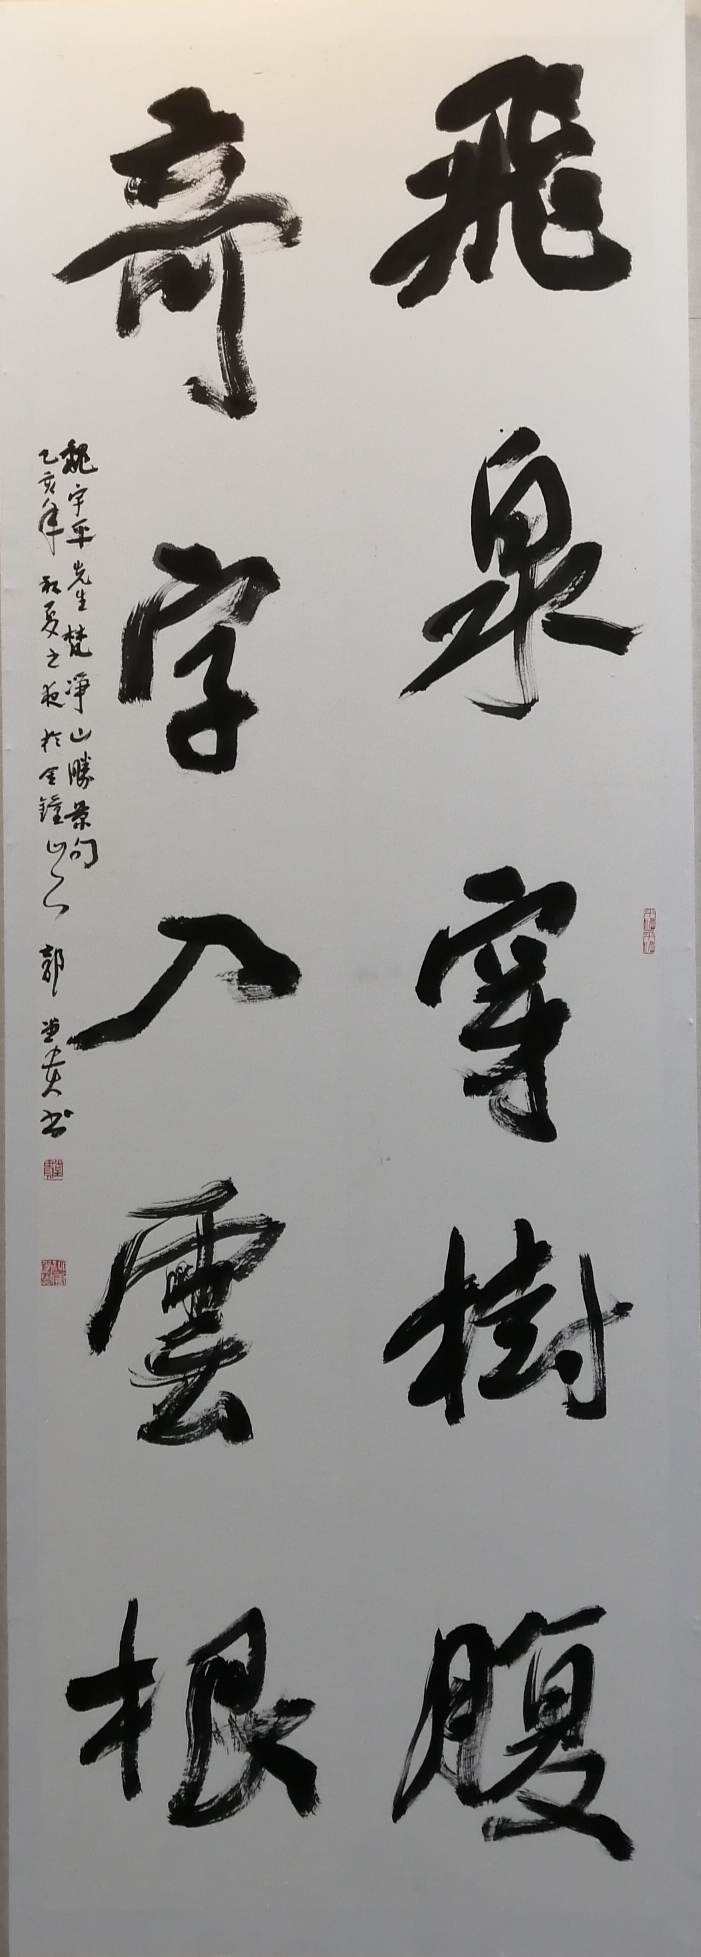 飛泉穿樹腹
奇字入雲根
魏宇平先生梵淨山勝景句
乙亥年初夏之夜於金鐘山下 郭堂貴书